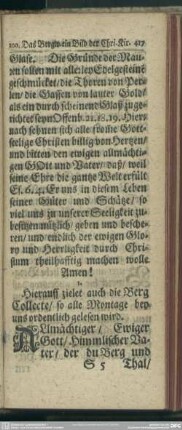 100. Das Bergw. ein Bild der Chri. Kir. 417
Glase. Die Gründe der Mau-
ren sollen mit allerley Edelgesteine
geschmücket/ die Thoren von Per-
len/ die Gassen von lauter Golde
als ein durch scheinend Glaß zuge-
richtet seyn Offenb. 21. 18. 19. Hier-
nach sehnen sich alle fromme Gott-
selige Christen billig von Hertzen/
und bitten den ewigen allmächti-
gen GOtt und Vater/ daß/ weil
seine Ehre die gantze Welt erfüllt
Es. 6. 4. Er uns in diesem Leben
seiner Güter und Schätze/ so
viel uns zu unserer Seeligkeit zu-
besitzen nützlich/ geben und besche-
ren/ und endlich der ewigen Glo-
ry und Herrligkeit durch Chri-
stum theilhafftig machen wolle
Amen!
Hierauff zielet auch die Berg
Collecte/ so alle Montage bey
uns ordentlich gelesen wird.
Allmächtiger/ Ewiger
Gott/ Himmlischer Va-
ter/ der du Berg und
S 5 Thal/